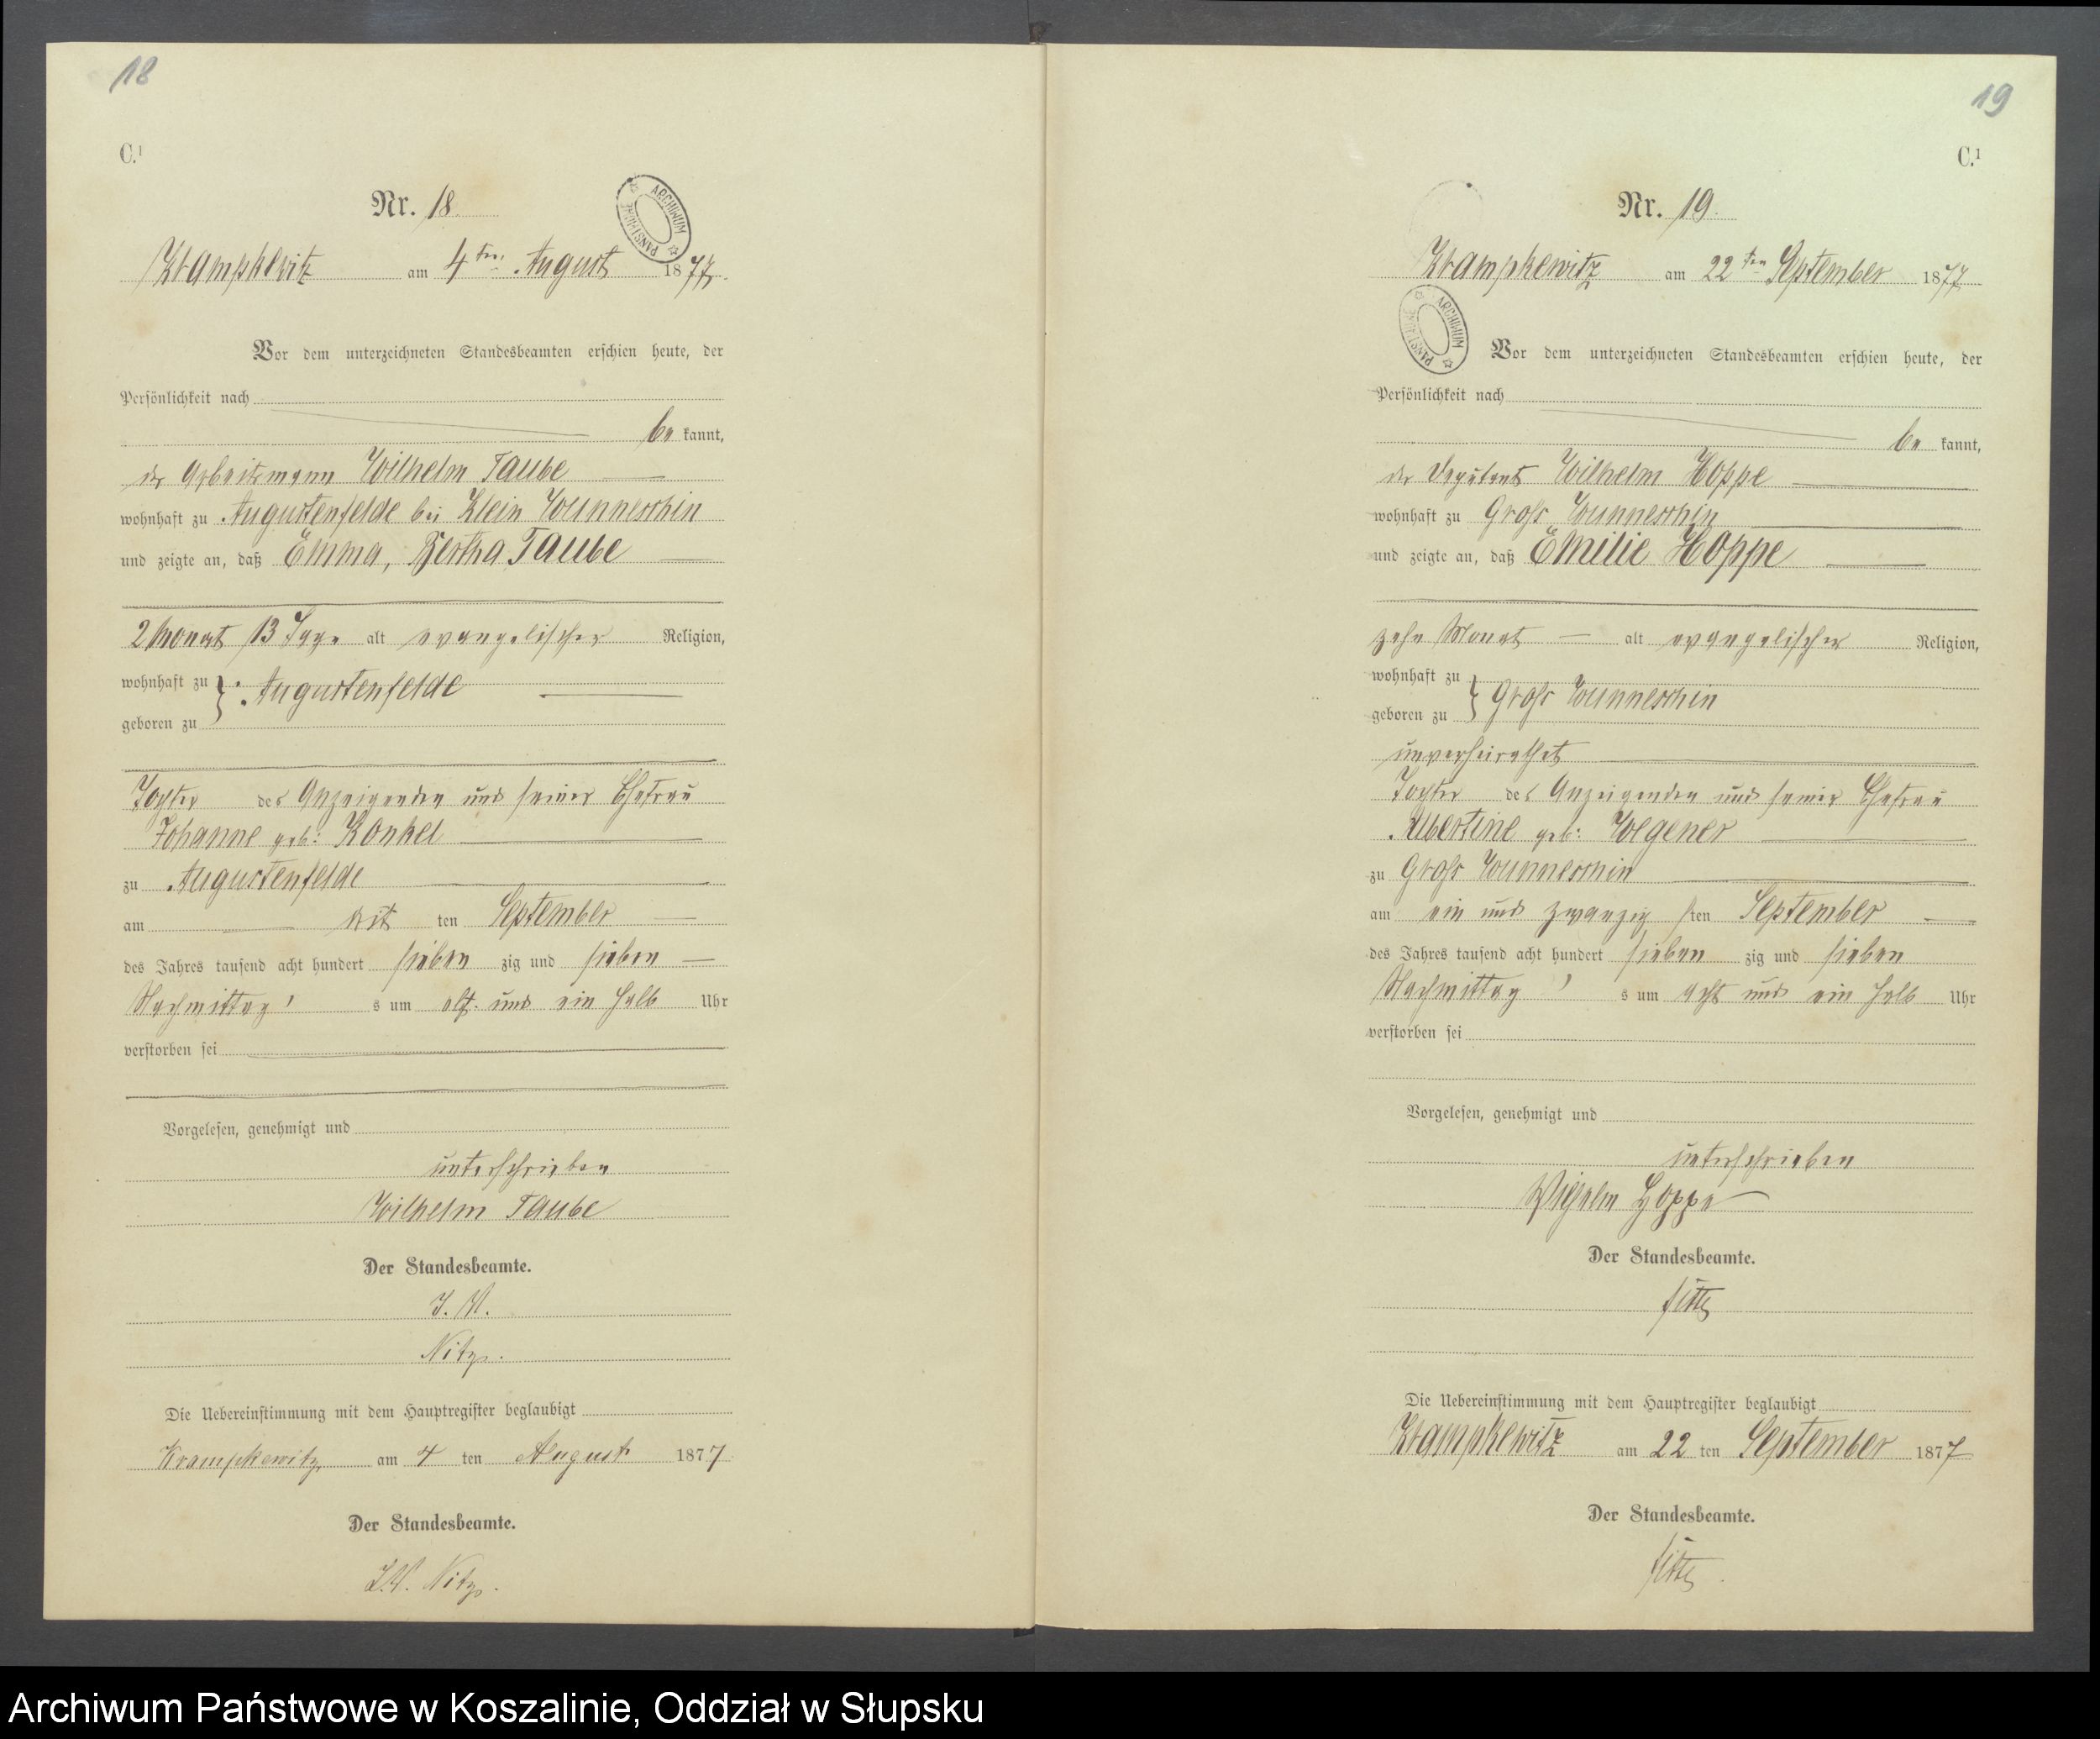 18
C.¹
Nr. 18.
Krampkewitz am 4ten August 1877.
Vor dem unterzeichneten Standesbeamten erschien heute, der
Persönlichkeit nach
be kannt,
der Arbeitsmann Wilhelm Taube
wohnhaft zu Augustenfelde bei Klein Wunneschin
und zeigte an, daß Emma, Bertha Taube
2 Monat 13 Tage alt evangelischer Religion,
wohnhaft zu
Augustenfelde
geboren zu
Tochter des Anzeigenden und seiner Ehefrau
Johanne geb: Konkel
zu Augustenfelde
am ten September
des Jahres tausend acht hundert sieben zig und sieben
Nachmittag s um elf und ein halb Uhr
verstorben sei
Vorgelesen, genehmigt und
unterschrieben
Wilhelm Taube
Der Standesbeamte.
I. V.
Nitz.
Die Uebereinstimmung mit dem Hauptregister beglaubigt
Krampkewitz am 4 ten August 1877
Der Standesbeamte.
I.V. Nitz.
ARCHIWUM PAŃSTWOWE
19
C.¹
Nr. 19.
Krampkewitz am 22ten September 1877
ARCHIWUM PAŃSTWOWE
Vor dem unterzeichneten Standesbeamten erschien heute, der
Persönlichkeit nach
be kannt,
der Deputant Wilhelm Hoppe
wohnhaft zu Groß Wunneschin
und zeigte an, daß Emilie Hoppe
zehn Monat alt evangelischer Religion,
wohnhaft zu
Groß Wunneschin
geboren zu
unverheirathet
Tochter des Anzeigenden und seiner Ehefrau
Albertine geb: Wegener
zu Groß Wunneschin
am ein und zwanzig sten September
des Jahres tausend acht hundert sieben zig und sieben
Nachmittag s um acht und ein halb Uhr
verstorben sei
Vorgelesen, genehmigt und
unterschrieben
Wilhelm Hoppe
Der Standesbeamte.
Die Uebereinstimmung mit dem Hauptregister beglaubigt
Krampkewitz am 22 ten September 1877
Der Standesbeamte.
Archiwum Państwowe w Koszalinie, Oddział w Słupsku